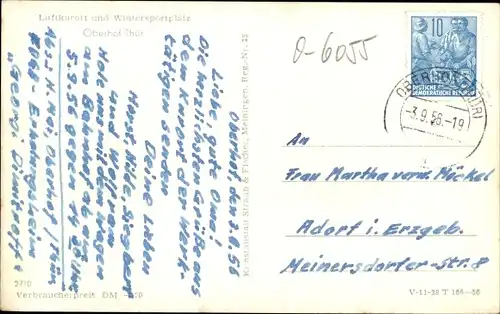 Luftkurort und Wintersportplatz
Oberhof Thür.
0-6055
10
DEUTSCHE
DEMOKRATISCHE REPUBLIK
OBERHOF (THÜR)
-3.9.56.-19
Oberhof, den 3.9.56
Liebe gute Oma!
Die herzlichsten Grüße aus
dem Kurort der Werk-
tätigen senden
Deine Lieben
Horst, Hilde, Siegbert
und Wolfram
Hole uns mit dem Wagen
am Bahnhof ab am
5.9.56 gegen
Abs. H. Mei, Oberhof / Thür
FDGB - Erholungsheim
"Georgi Dimitroff"
Kunstanstalt Straub & Fischer, Meiningen, Reg.-Nr. 25
An
Frau Martha verw. Möckel
Adorf i. Erzgeb.
Meinersdorfer-Str. 8
Verbraucherpreis DM
V-11-28 T 166-56